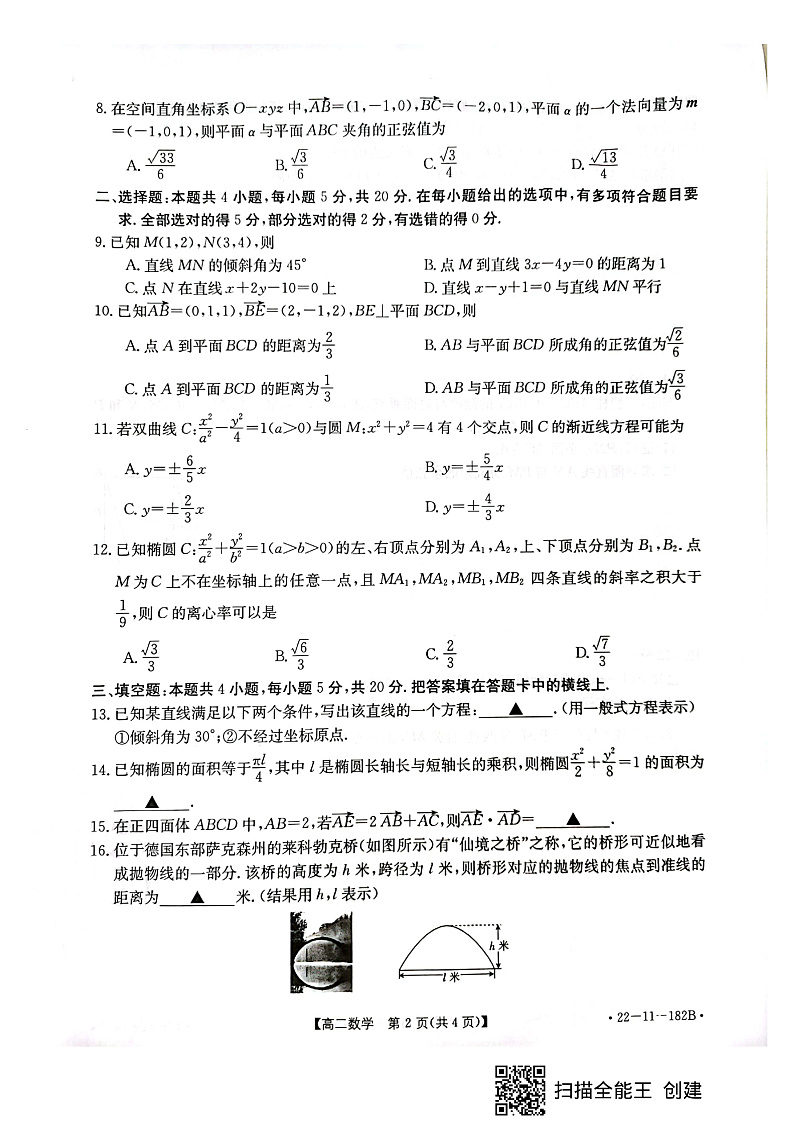 8. 在空间直角坐标系 O－xyz 中,$\overrightarrow{AB}$=(1,－1,0),$\overrightarrow{BC}$=(－2,0,1),平面 α 的一个法向量为 m
=(－1,0,1),则平面 α 与平面 ABC 夹角的正弦值为
A. $\frac{\sqrt{33}}{6}$ B. $\frac{\sqrt{3}}{6}$ C. $\frac{\sqrt{3}}{4}$ D. $\frac{\sqrt{13}}{4}$
二、选择题:本题共 4 小题,每小题 5 分,共 20 分. 在每小题给出的选项中,有多项符合题目要
求. 全部选对的得 5 分,部分选对的得 2 分,有选错的得 0 分.
9. 已知 M(1,2),N(3,4),则
A. 直线 MN 的倾斜角为 45° B. 点 M 到直线 3x－4y=0 的距离为 1
C. 点 N 在直线 x＋2y－10=0 上 D. 直线 x－y＋1=0 与直线 MN 平行
10. 已知$\overrightarrow{AB}$=(0,1,1),$\overrightarrow{BE}$=(2,－1,2),BE⊥平面 BCD,则
A. 点 A 到平面 BCD 的距离为$\frac{2}{3}$ B. AB 与平面 BCD 所成角的正弦值为$\frac{\sqrt{2}}{6}$
C. 点 A 到平面 BCD 的距离为$\frac{1}{3}$ D. AB 与平面 BCD 所成角的正弦值为$\frac{\sqrt{3}}{6}$
11. 若双曲线 C:$\frac{x^2}{a^2}-\frac{y^2}{4}$=1(a>0)与圆 M:x²＋y²=4 有 4 个交点,则 C 的渐近线方程可能为
A. y=±$\frac{6}{5}$x B. y=±$\frac{5}{4}$x
C. y=±$\frac{2}{3}$x D. y=±$\frac{4}{3}$x
12. 已知椭圆 C:$\frac{x^2}{a^2}+\frac{y^2}{b^2}$=1(a>b>0)的左、右顶点分别为 A₁,A₂,上、下顶点分别为 B₁,B₂. 点
M 为 C 上不在坐标轴上的任意一点,且 MA₁,MA₂,MB₁,MB₂ 四条直线的斜率之积大于
$\frac{1}{9}$,则 C 的离心率可以是
A. $\frac{\sqrt{3}}{3}$ B. $\frac{\sqrt{6}}{3}$ C. $\frac{2}{3}$ D. $\frac{\sqrt{7}}{3}$
三、填空题:本题共 4 小题,每小题 5 分,共 20 分. 把答案填在答题卡中的横线上.
13. 已知某直线满足以下两个条件,写出该直线的一个方程:＿＿▲＿＿.(用一般式方程表示)
①倾斜角为 30°;②不经过坐标原点.
14. 已知椭圆的面积等于$\frac{\pi l}{4}$,其中 l 是椭圆长轴长与短轴长的乘积,则椭圆$\frac{x^2}{2}+\frac{y^2}{8}$=1 的面积为
＿＿▲＿＿.
15. 在正四面体 ABCD 中,AB=2,若$\overrightarrow{AE}$=2$\overrightarrow{AB}$+$\overrightarrow{AC}$,则$\overrightarrow{AE}$·$\overrightarrow{AD}$=＿＿▲＿＿.
16. 位于德国东部萨克森州的莱科勃克桥(如图所示)有“仙境之桥”之称,它的桥形可近似地看
成抛物线的一部分. 该桥的高度为 h 米,跨径为 l 米,则桥形对应的抛物线的焦点到准线的
距离为＿＿▲＿＿米.(结果用 h,l 表示)
h 米
l 米
【高二数学 第 2 页(共 4 页)】
·22－11－182B·
扫描全能王 创建